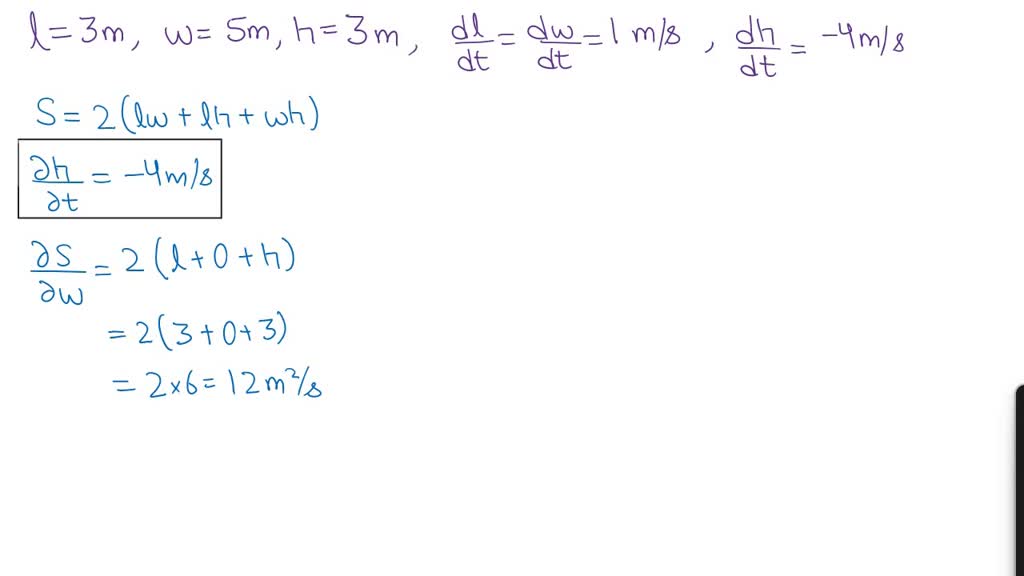 l = 3m, w = 5m, h = 3m, dl/dt = dw/dt = 1 m/s, dh/dt = -4m/s
S = 2(lw + lh + wh)
∂h/∂t = -4m/s
∂S/∂w = 2(l + 0 + h)
= 2(3 + 0 + 3)
= 2 × 6 = 12 m²/s